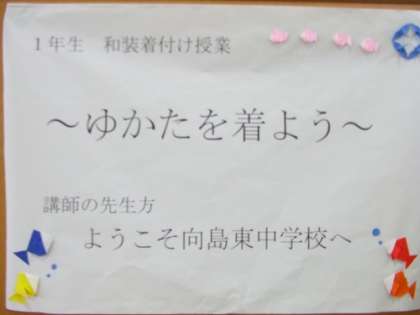 1年生　和装着付け授業
～ゆかたを着よう～
講師の先生方
ようこそ向島東中学校へ